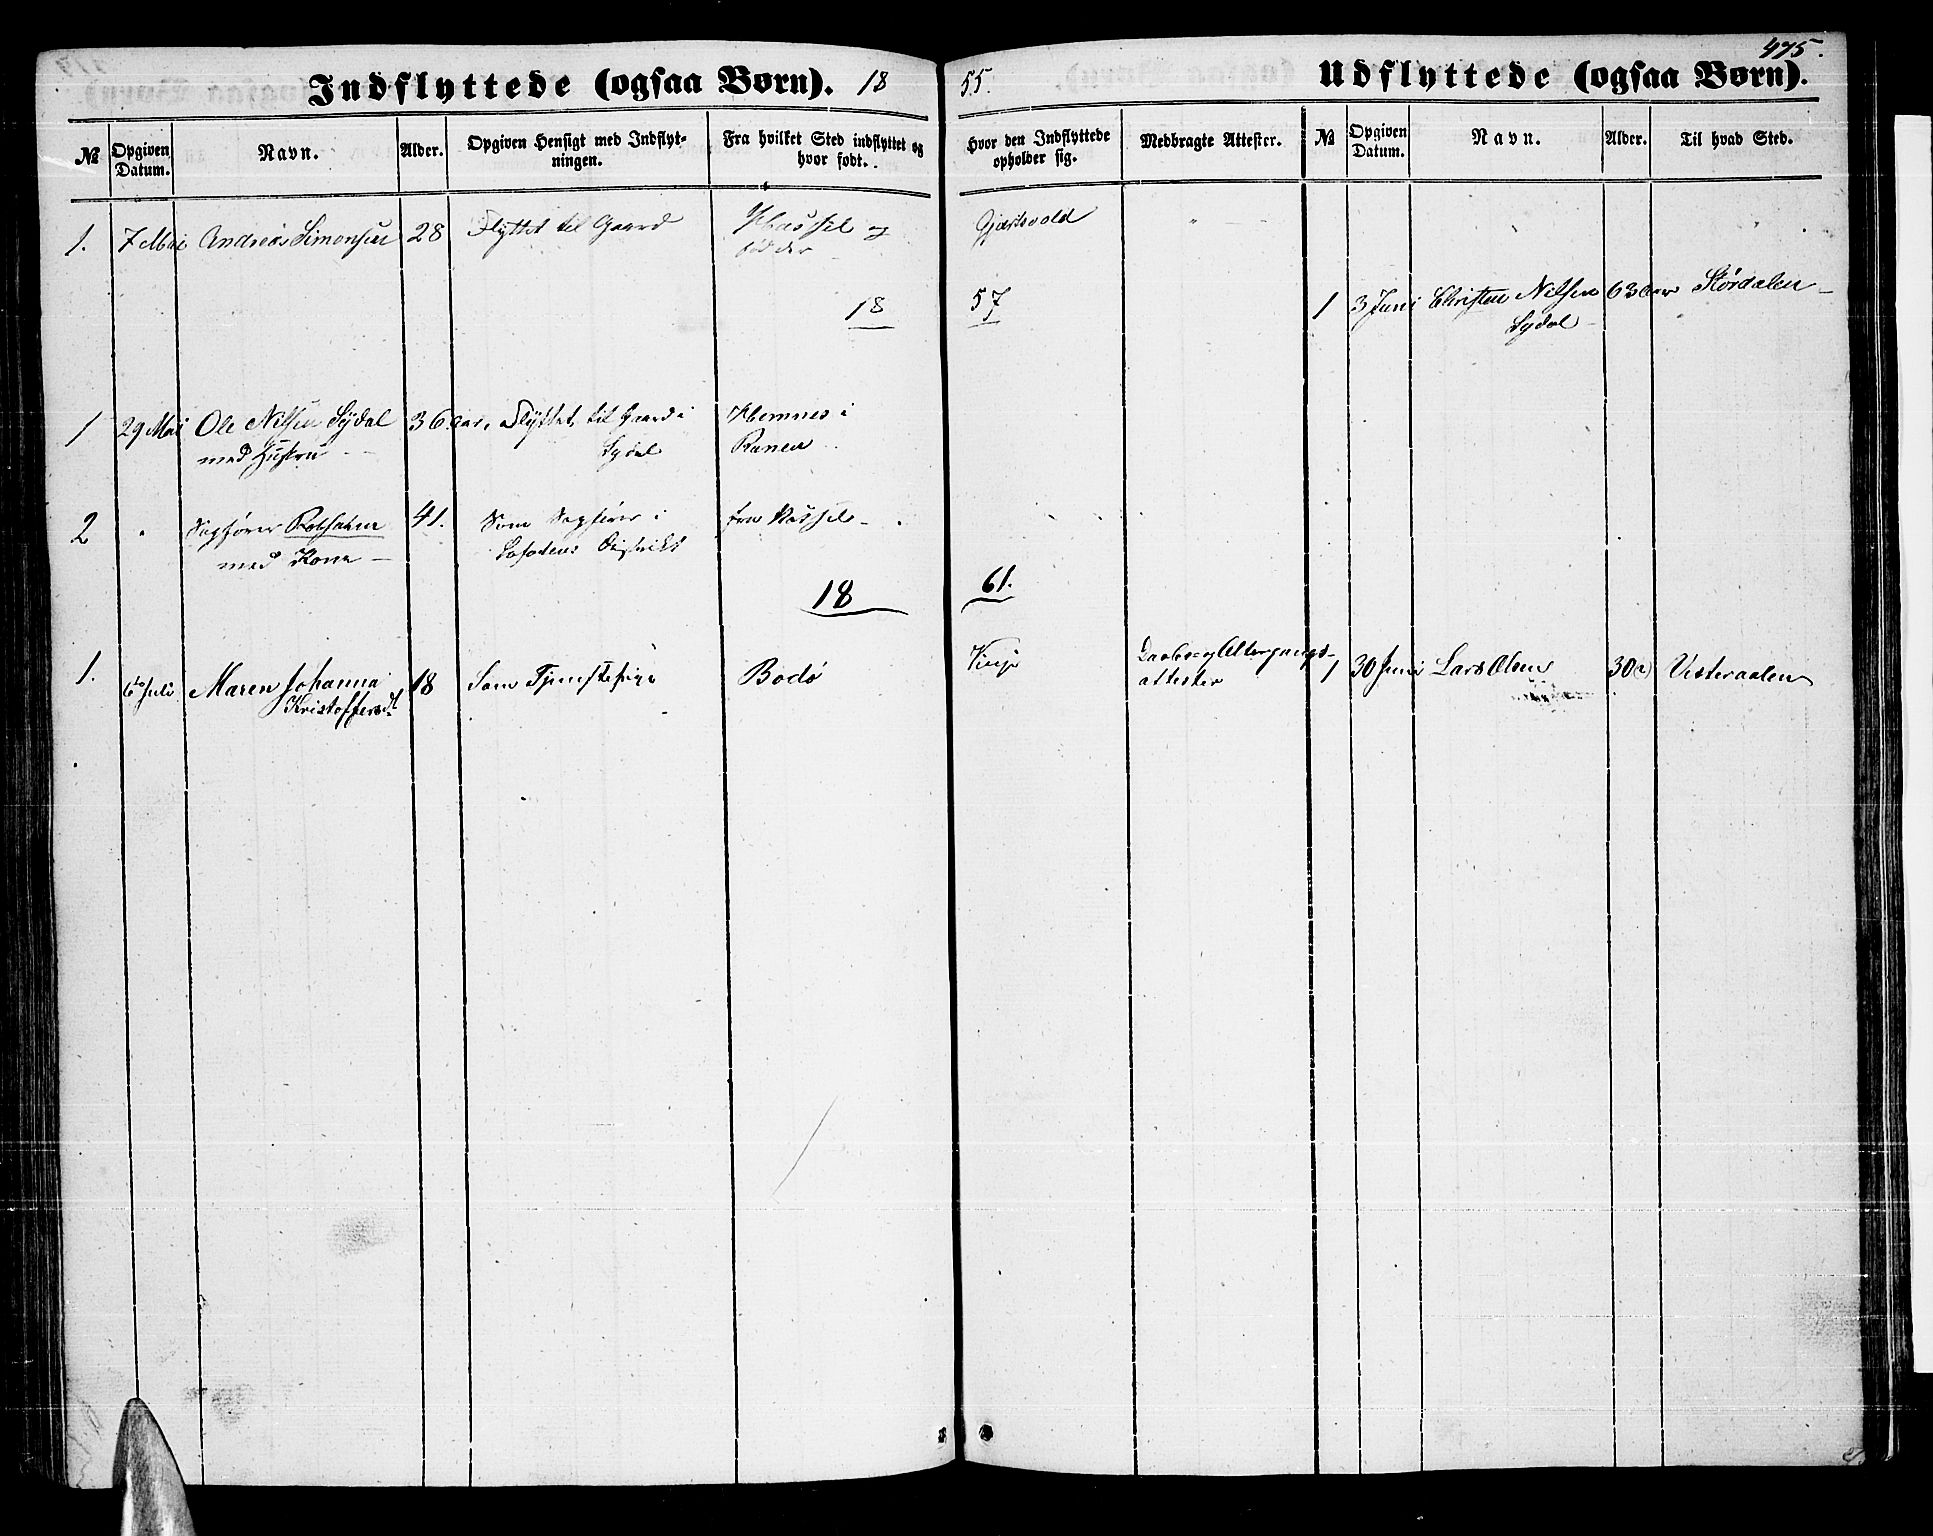 475.
Indflyttede (ogsaa Børn). 18 55. Udflyttede (ogsaa Børn).
№ Opgiven Datum. Navn. Alder. Opgiven Hensigt med Indflyt-ningen. Fra hvilket Sted indflyttet og hvor født. Hvor den Indflyttede opholder sig. Medbragte Attester. № Opgiven Datum. Navn. Alder. Til hvad Sted.
1. 7 Mai Andreas Simonsen 28 Flyttet til Gaard Hassel og Gjerstvold
fød der
18 57
1 3 Juni Christen Nilsen 63 aar Stördalen
Sydal
1 29 Mai Ole Nilsen Sydal 36 aar, Flyttet til Gaard i Hemnes i
med Hustru Sydal Ranen
2 " Sagfører 41. Som Sagfører i fra Hassel
med Kone Lofodens Distrikt
18 61.
1. 6te Juli Maren Johanna 18 Som Tjenestepige Bodö Vinje Daabs og Altergangs- 1 30 Juni Lars Olsen 30 Vesteraalen
Kristoffersdt attester